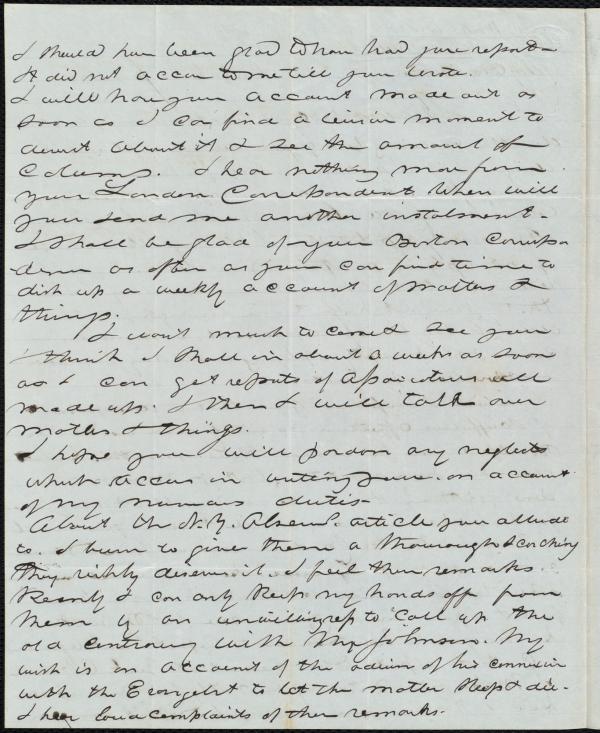 I should have been glad to have had your report -
It did not occur to me till you wrote.
I will have your account made out as
soon as I can find a leisure moment to
devote about it & see the amount of
Columns. I hear nothing more from
your London Correspondent when will
you send me another instalment -
I shall be glad of your Boston Correspon
dence as often as you can find time to
dish up a weekly account of matters &
things.
I want much to come & see you
I think I shall in about a week as soon
as I can get reports of Associations all
made up. & then I will talk over
matters & things.
I hope you will pardon any neglects
which occur in writing you on account
of my numerous duties -
About the N.Y. article you allude
to. I burn to give them a thorough scorching
They richly deserve it. I feel their remarks
keenly & can only keep my hands off from
them by an unwillingness to call up the
old controversy with Mr Johnson. My
wish is on account of the of his connexion
with the Evangelist to let the matter sleep & die.
I hear loud complaints of their remarks.